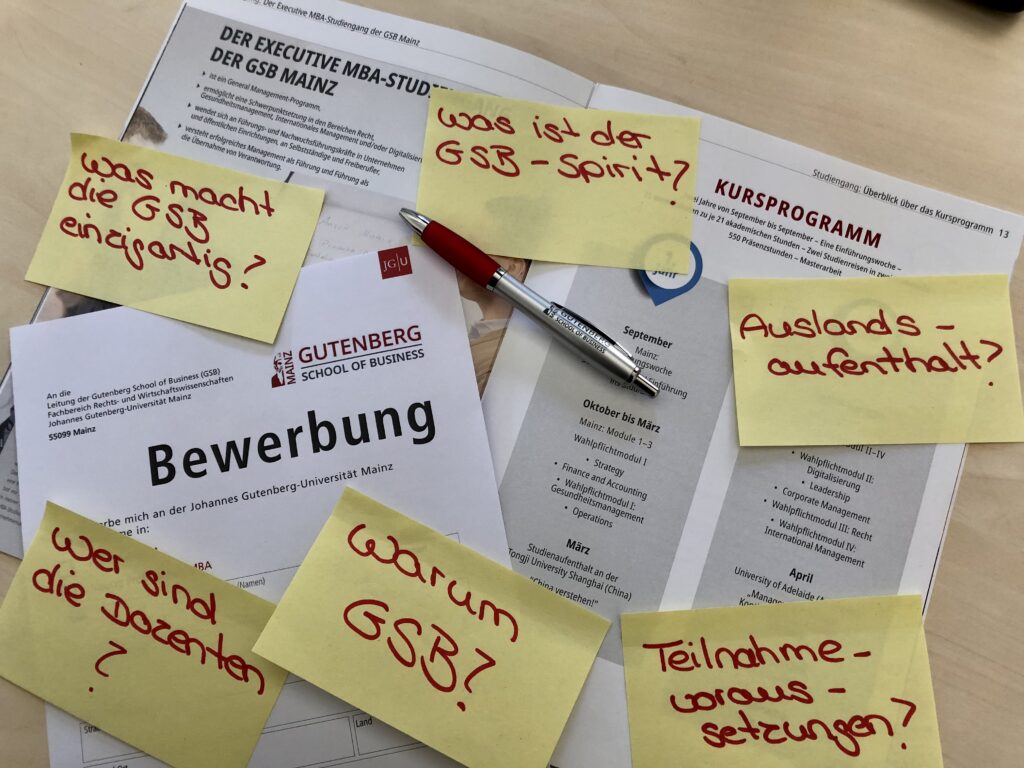 Der Executive MBA-Studiengang der GSB Mainz
DER EXECUTIVE MBA-STUDIENGANG
DER GSB MAINZ
ist ein General Management-Programm,
ermöglicht eine Schwerpunktsetzung in den Bereichen Recht,
Gesundheitsmanagement, Internationales Management und/oder Digitalisier
wendet sich an Führungs- und Nachwuchsführungskräfte in Unternehmen
und öffentlichen Einrichtungen, an Selbstständige und Freiberufler,
versteht erfolgreiches Management als Führung und Führung als
die Übernahme von Verantwortung.
Was ist der
GSB-Spirit?
Was macht
die GSB
einzigartig?
Studiengang: Überblick über das Kursprogramm 13
KURSPROGRAMM
Jahre von September bis September – Eine Einführungswoche –
zu je 21 akademischen Stunden – Zwei Studienreisen in
550 Präsenzstunden – Masterarbeit
Jahr
Auslands-
aufenthalt?
JG|U
MAINZ
GUTENBERG
SCHOOL OF BUSINESS
GUTENBERG
SCHOOL OF BUSINESS
An die
Leitung der Gutenberg School of Business (GSB)
Fachbereich Rechts- und Wirtschaftswissenschaften
Johannes Gutenberg-Universität Mainz
55099 Mainz
Bewerbung
be mich an der Johannes Gutenberg-Universität Mainz
e in:
MBA
(Namen)
Land
September
Mainz:
ungswoche
führung
Oktober bis März
Mainz: Module 1–3
Wahlpflichtmodul I
• Strategy
• Finance and Accounting
• Wahlpflichtmodul I:
Gesundheitsmanagement
• Operations
März
Studienaufenthalt an der
Tongji University Shanghai (China)
„China verstehen!“
II–IV
• Wahlpflichtmodul II:
Digitalisierung
• Leadership
• Corporate Management
• Wahlpflichtmodul III: Recht
• Wahlpflichtmodul IV:
International Management
April
University of Adelaide (A
„Manag
Wer sind
die Dozenten
?
Warum
GSB?
Teilnahme-
voraus-
setzungen?